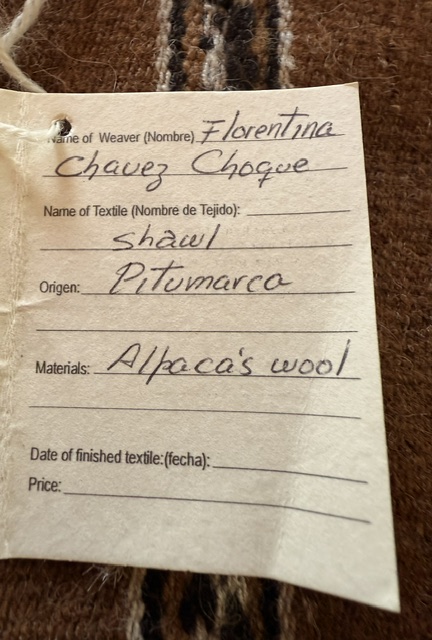 Name of Weaver (Nombre) Florentina
Chavez Choque
Name of Textile (Nombre de Tejido):
shawl
Origen: Pitumarca
Materials: Alpaca's wool
Date of finished textile:(fecha):
Price: